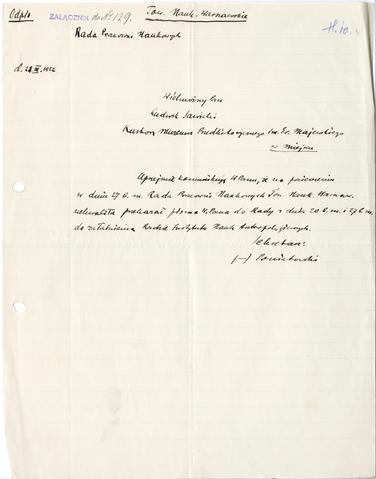 Odpis
ZAŁĄCZNIK do № 129.
Tow. Nauk. Warszawskie
Rada Pracowni Naukowych
H. 10.
d. 28 III. 1922
Wielmożny Pan
Ludwik Sawicki
Kustosz Muzeum Przedhistorycznego im. Er. Majewskiego
w miejscu
Uprzejmie komunikuję W Panu, że na posiedzeniu
w dniu 27 b. m. Rada Pracowni Naukowych Tow. Nauk. Warszaw.
uchwaliła przekazać pisma W. Pana do Rady z dnia 20 b. m. i 27 b. m.
do załatwienia Radzie Instytutu Nauk Antropologicznych.
Sekretarz:
(—) Poniatowski